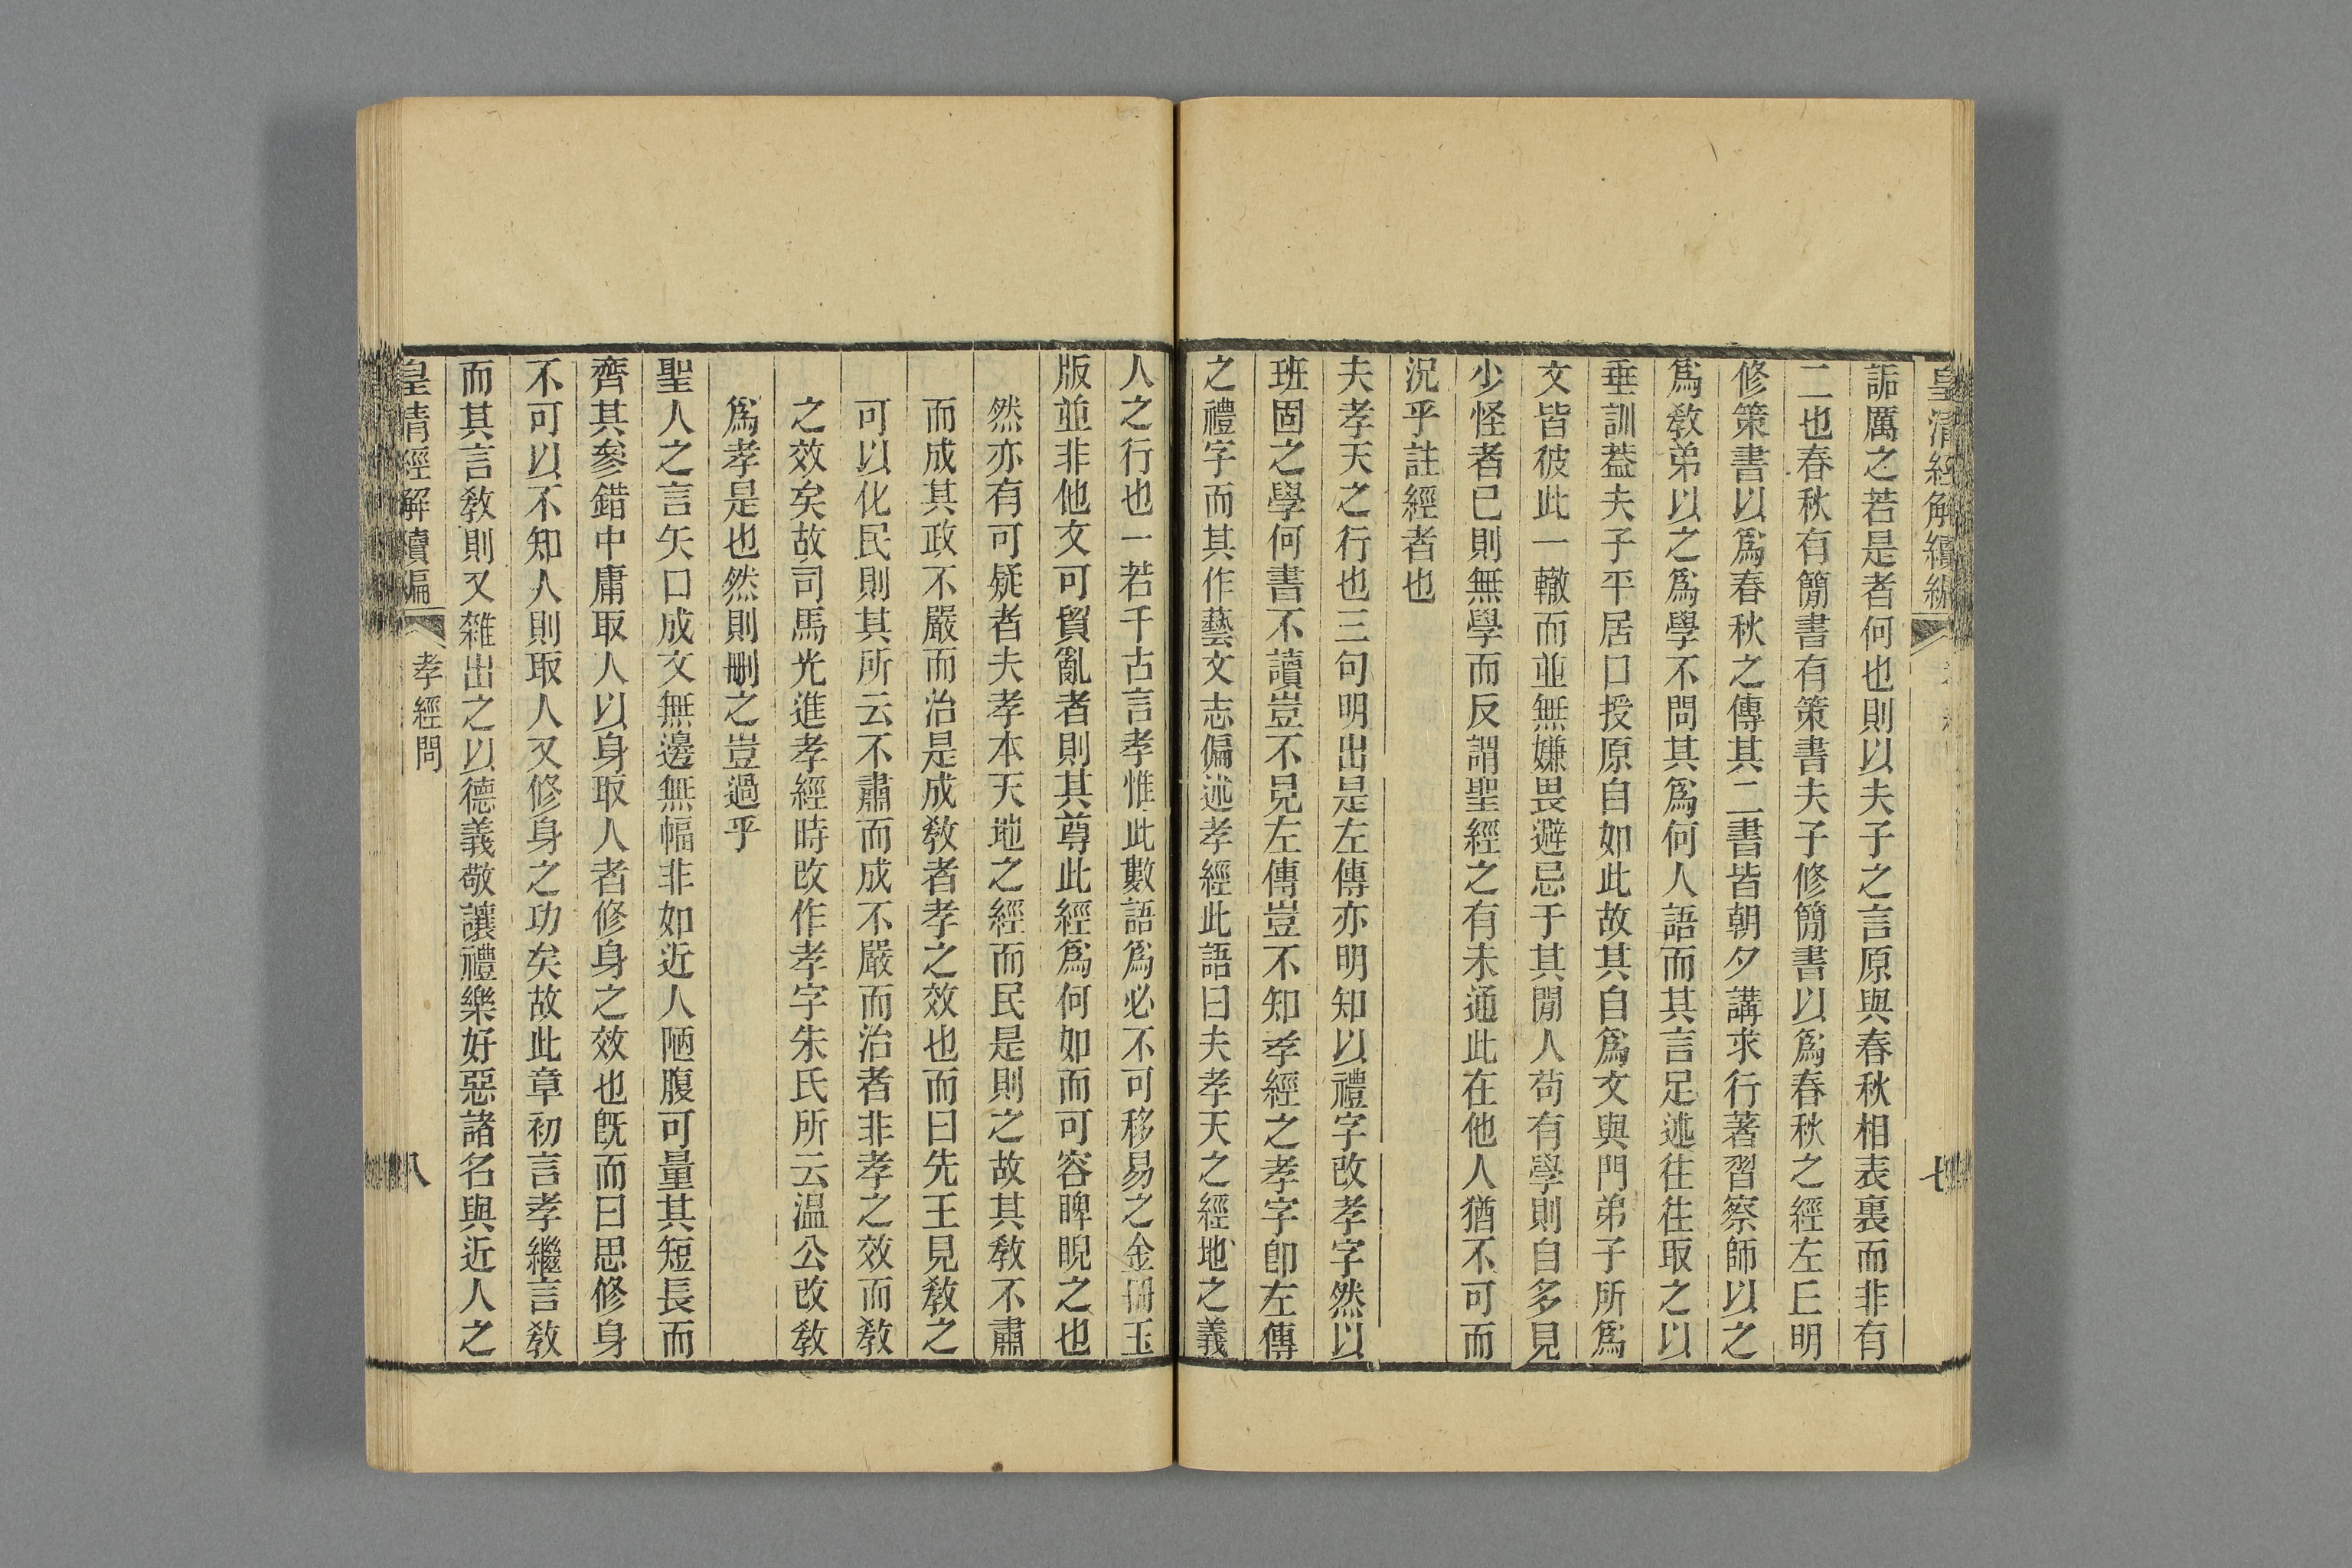 皇清經解續編
七
詬厲之若是者何也則以夫子之言原與春秋相表裏而非有
二也春秋有簡書有策書夫子修簡書以爲春秋之經左丘明
修策書以爲春秋之傳其二書皆朝夕講求行著習察師以之
爲敎弟以之爲學不問其爲何人語而其言足述往往取之以
垂訓葢夫子平居口授原自如此故其自爲文與門弟子所爲
文皆彼此一轍而並無嫌畏避忌于其閒人苟有學則自多見
少怪者已則無學而反謂聖經之有未通此在他人猶不可而
況乎註經者也
夫孝天之行也三句明出是左傳亦明知以禮字改孝字然以
班固之學何書不讀豈不見左傳豈不知孝經之孝字卽左傳
之禮字而其作藝文志偏述孝經此語曰夫孝天之經地之義
人之行也一若千古言孝惟此數語爲必不可移易之金冊玉
版並非他文可貿亂者則其尊此經爲何如而可容睥睨之也
然亦有可疑者夫孝本天地之經而民是則之故其敎不肅
而成其政不嚴而治是成敎者孝之效也而曰先王見敎之
可以化民則其所云不肅而成不嚴而治者非孝之效而敎
之效矣故司馬光進孝經時改作孝字朱氏所云温公改敎
爲孝是也然則刪之豈過乎
聖人之言矢口成文無邊無幅非如近人陋腹可量其短長而
齊其參錯中庸取人以身取人者修身之效也旣而曰思修身
不可以不知人則取人又修身之功矣故此章初言孝繼言敎
而其言敎則又雜出之以德義敬讓禮樂好惡諸名與近人之
皇清經解續編
孝經問
八